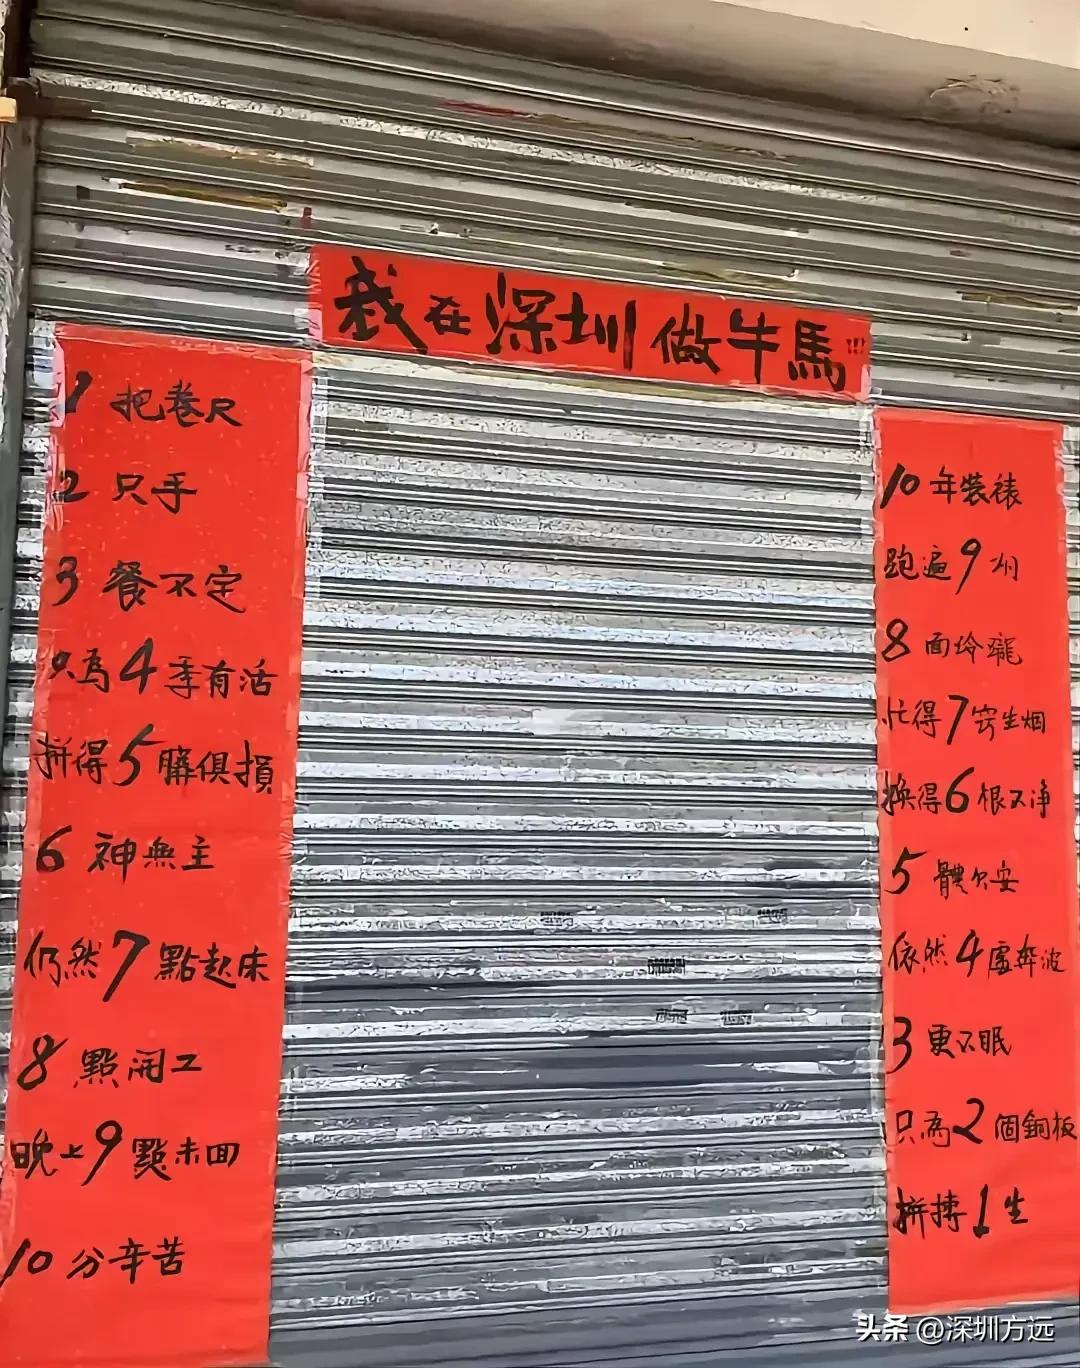 我在深圳做牛馬!!!
1把卷尺
2只手
3餐不定
只為4季有活
拼得5臟俱損
6神無主
仍然7點起床
8點開工
晚上9點未回
10分辛苦
10年装裱
跑遍9州
8面玲瓏
忙得7窍生烟
换得6根不净
5體欠安
依然4處奔波
3更不眠
只為2個銅板
拼搏1生
头条 @深圳方远